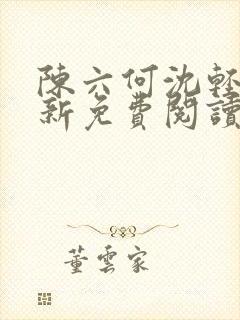 陳六何沈輕
新免費閱讀
董雲家